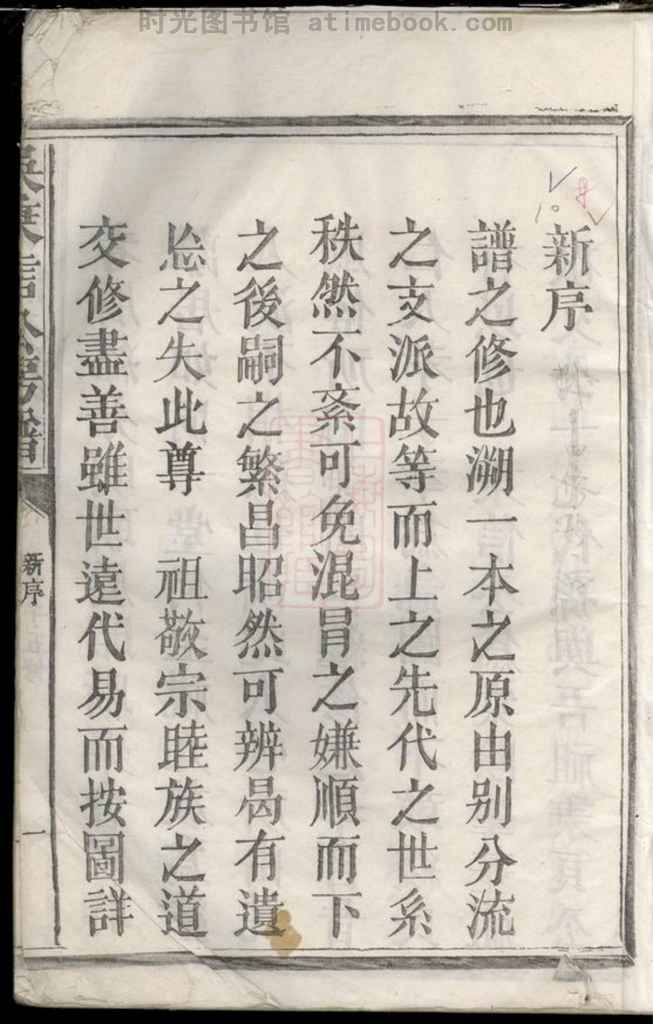 时光图书馆 atimebook.com
新序
譜之修也溯一本之原由別分流
之支派故等而上之先代之世系
秩然不紊可免混冒之嫌順而下
之後嗣之繁昌昭然可辨曷有遺
之失此尊 祖敬宗睦族之道
交修盡善雖世遠代易而按圖詳
新序
一